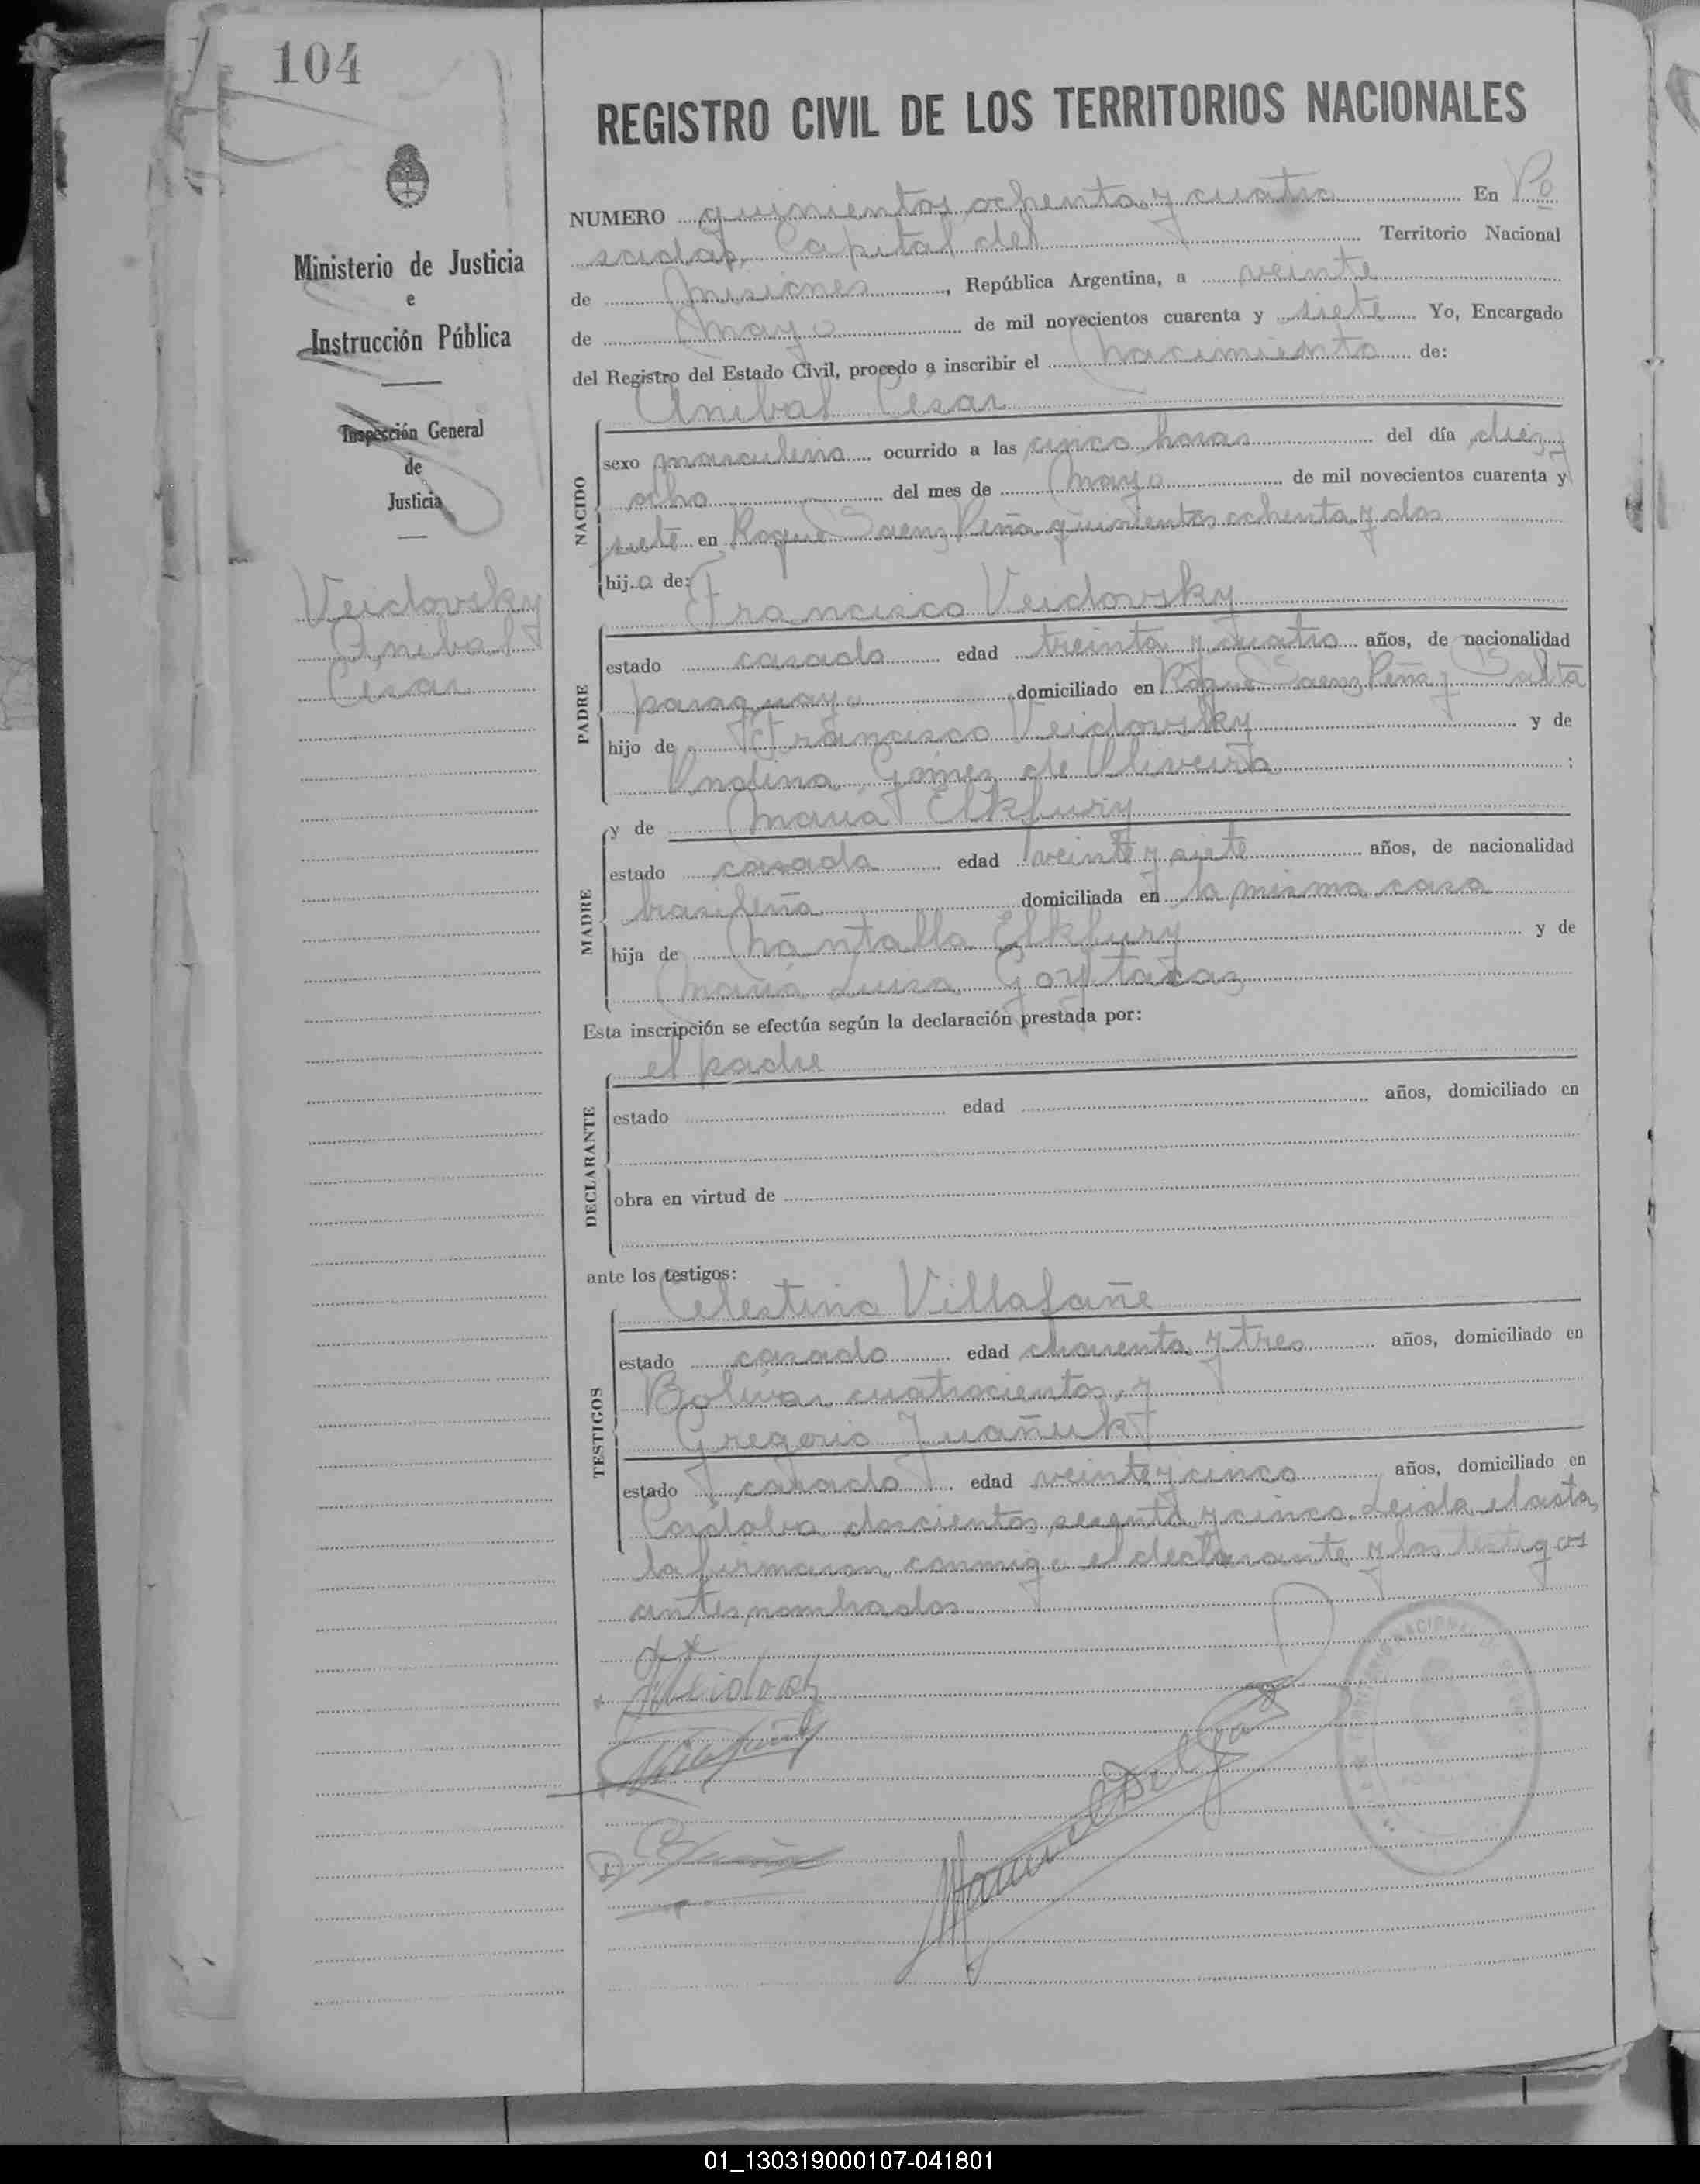 104
REGISTRO CIVIL DE LOS TERRITORIOS NACIONALES
Ministerio de Justicia
e
Instrucción Pública
Inspección General
de
Justicia
Veidovsky
Anibal
Cesar
NUMERO quinientos ochenta y cuatro En Po
sadas, Capital del Territorio Nacional
de Misiones, República Argentina, a veinte
de Mayo de mil novecientos cuarenta y siete Yo, Encargado
del Registro del Estado Civil, procedo a inscribir el nacimiento de:
Anibal Cesar
NACIDO
sexo masculino ocurrido a las cinco horas del día diez y
ocho del mes de Mayo de mil novecientos cuarenta y
siete en Roque Saenz Peña quinientos ochenta y dos
hijo de:
Francisco Veidovsky
PADRE
estado casado edad treinta y cuatro años, de nacionalidad
paraguayo domiciliado en Roque Saenz Peña y Salta
hijo de Francisco Veidovsky y de
Gomez de Oliveira;
y de Maria Elkfury
MADRE
estado casada edad veinte y siete años, de nacionalidad
brasileña domiciliada en la misma casa
hija de Elkfury y de
Maria Luisa Goytacaz
Esta inscripción se efectúa según la declaración prestada por:
el padre
DECLARANTE
estado edad años, domiciliado en
obra en virtud de
ante los testigos:
Celestino Villafañe
TESTIGOS
estado casado edad cuarenta y tres años, domiciliado en
Bolivar cuatrocientos, y
Gregorio
estado casado edad veinte y cinco años, domiciliado en
Cordoba doscientos sesenta y cinco. Leida el acta,
la firmaron conmigo el declarante y los testigos
antes nombrados
Manuel
01_130319000107-041801